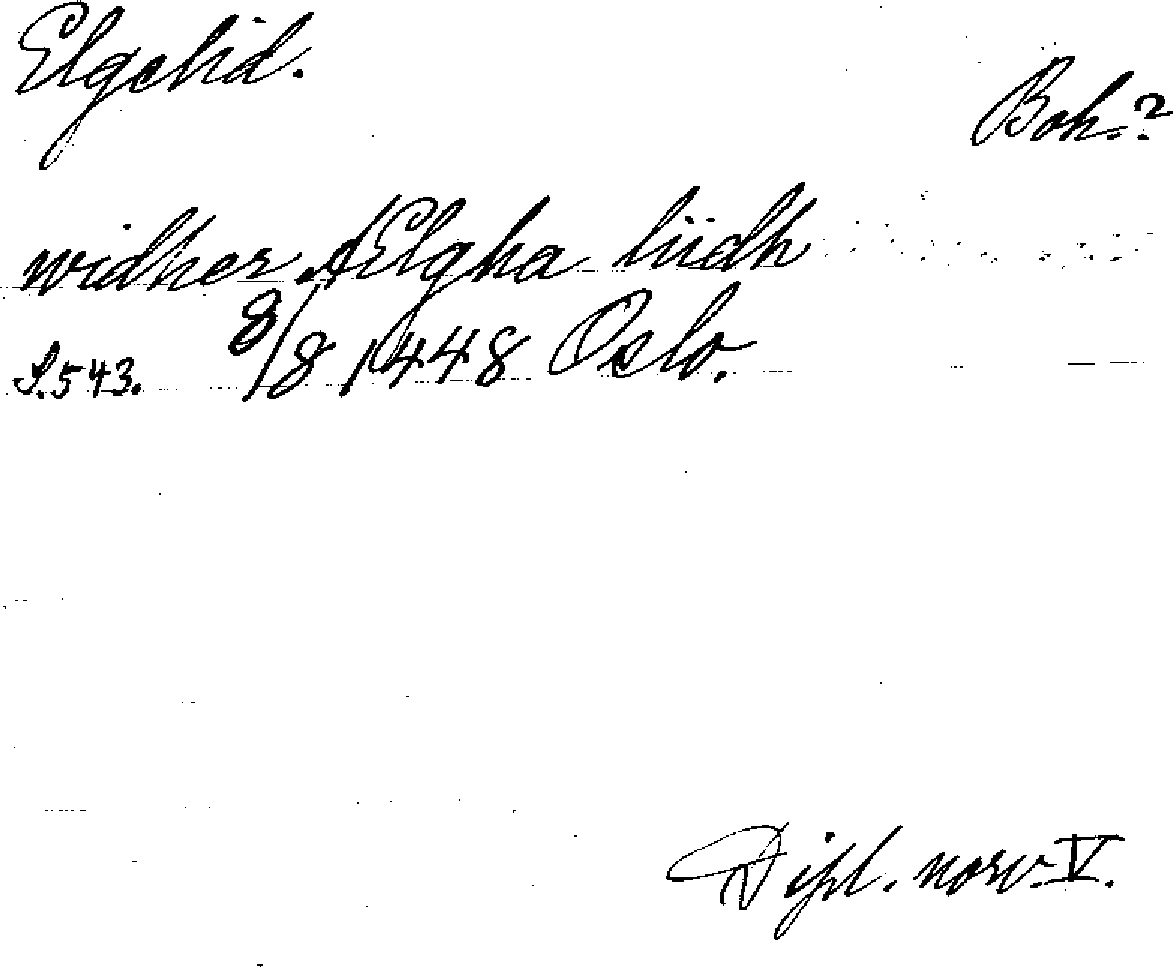 Elgelid.
Boh.?
widher Ælgha liidh
S.543. 8/8 1448 Oslo.
Dipl. norv. V.